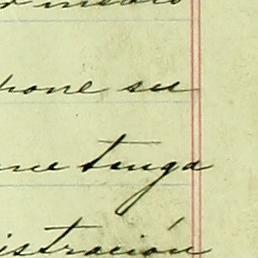 pone su
me tenga
istración